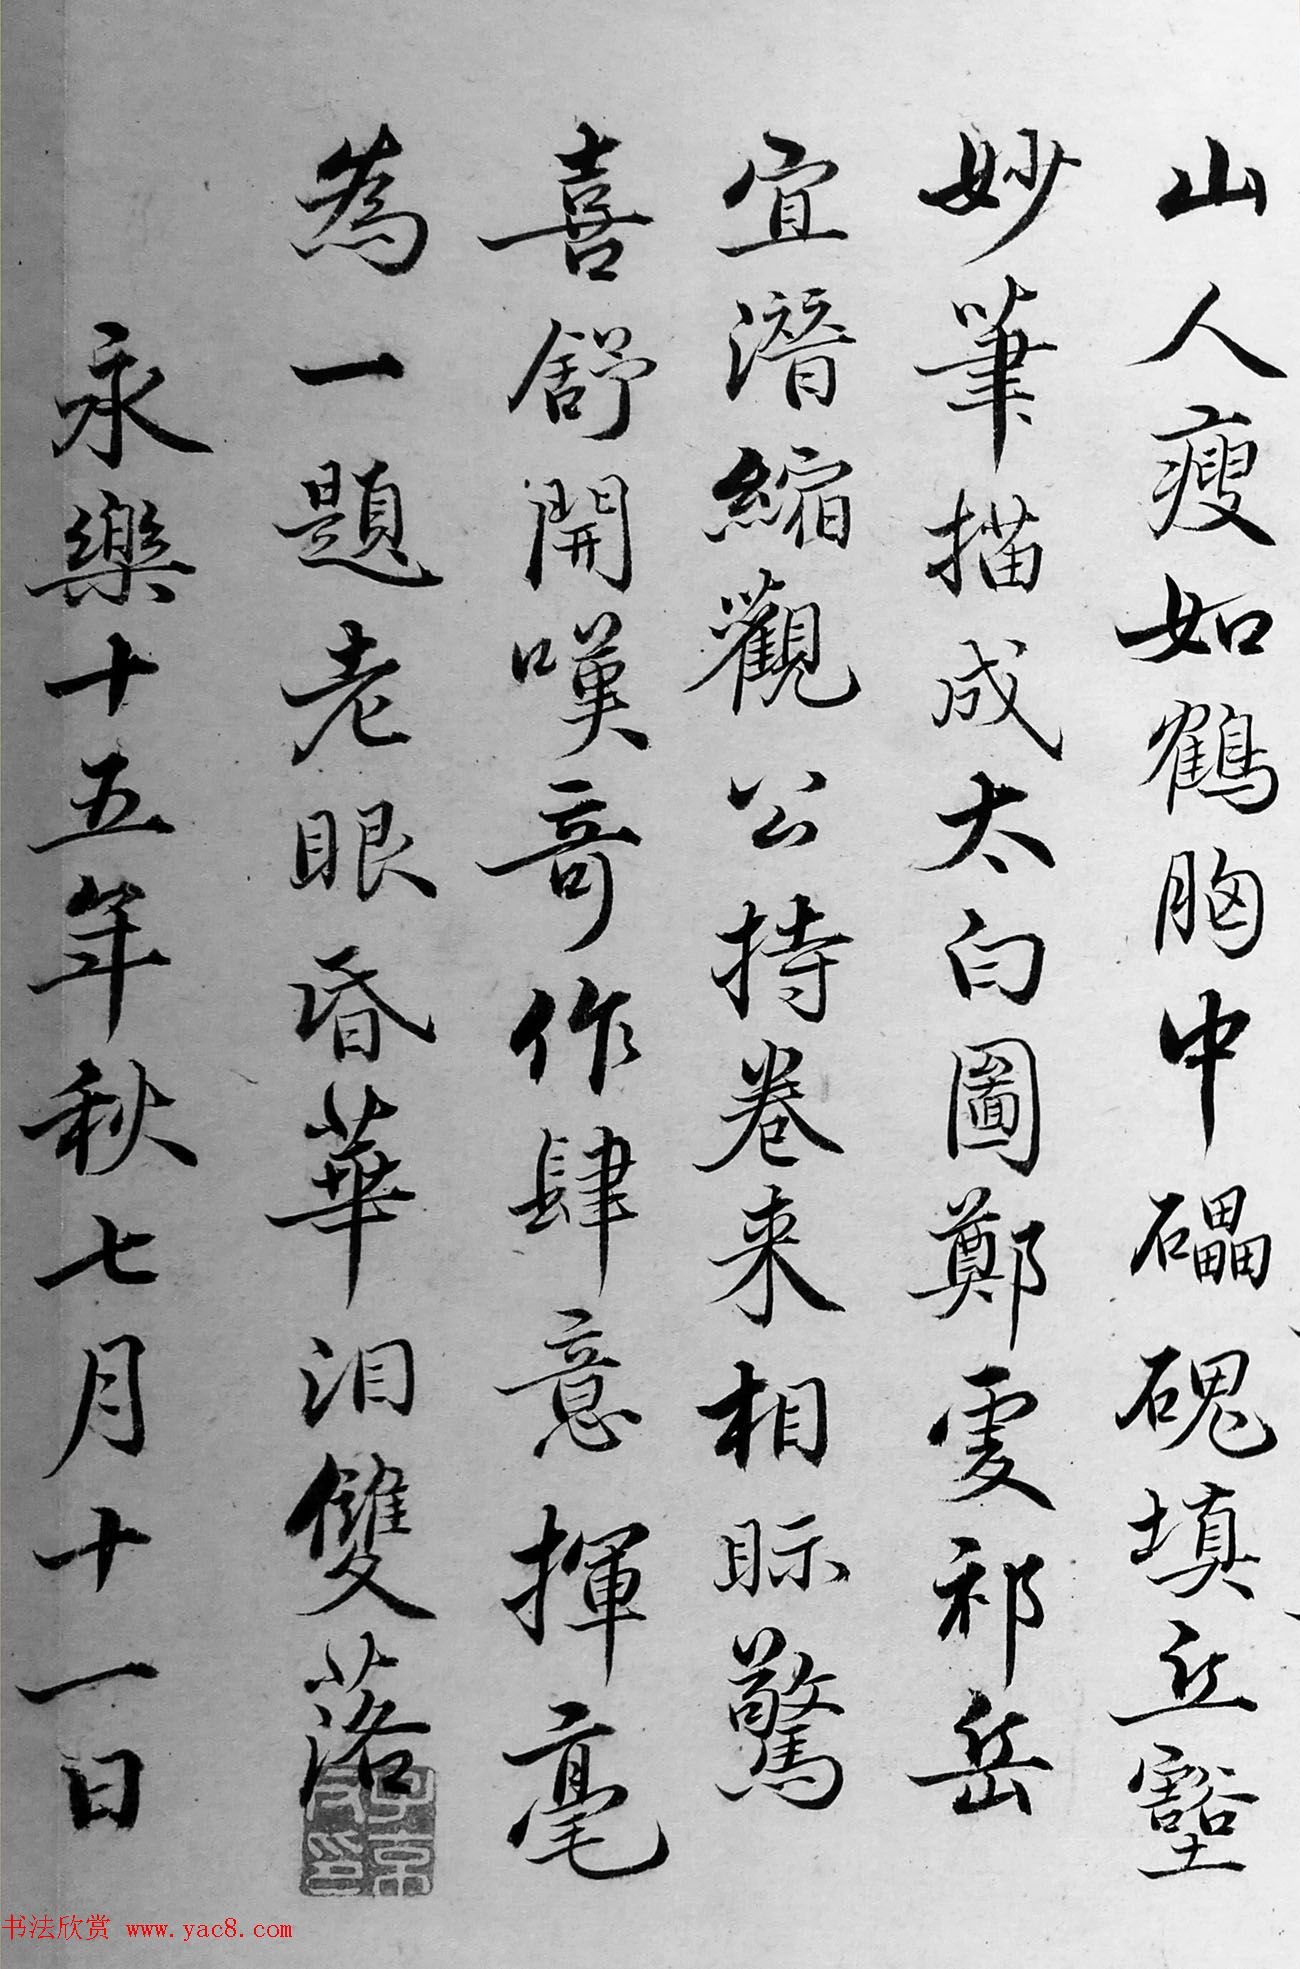 山人瘦如鶴胸中礧磈填丘壑
妙筆描成太白圖鄭虔祁岳
宜潛縮觀公持卷来相眎驚
喜舒開嘆哥作肆意揮毫
為一題老眼昏華泪雙落
永樂十五年秋七月十一日
书法欣赏 www.yac8.com